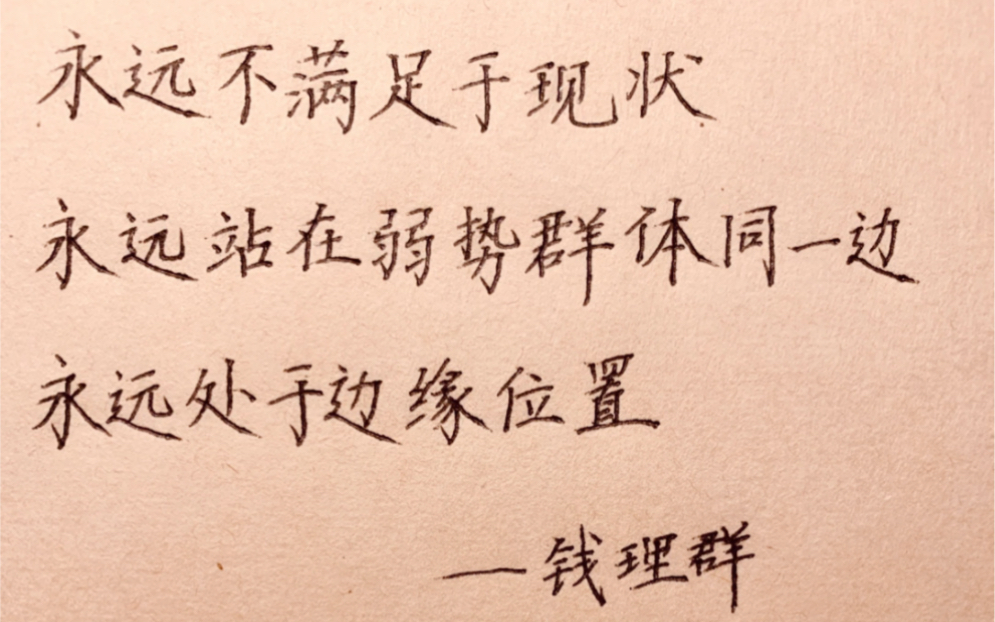 永远不满足于现状
永远站在弱势群体同一边
永远处于边缘位置
—钱理群